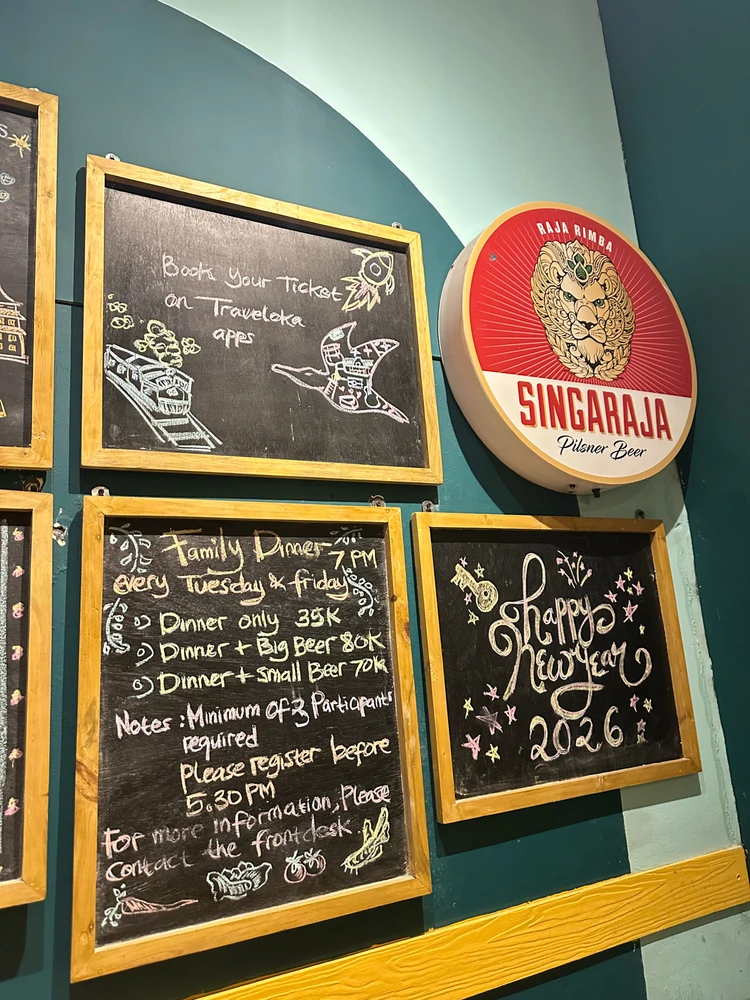 Book Your Ticket
on Traveloka
apps
RAJA RIMBA
SINGARAJA
Pilsner Beer
Family Dinner 7 PM
every Tuesday & friday
Dinner only 35K
Dinner + Big Beer 80K
Dinner + small Beer 70k
Notes : Minimum of 3 Participants
required
please register before
5.30 PM
For more information, Please
contact the frontdesk
happy
new year
2026